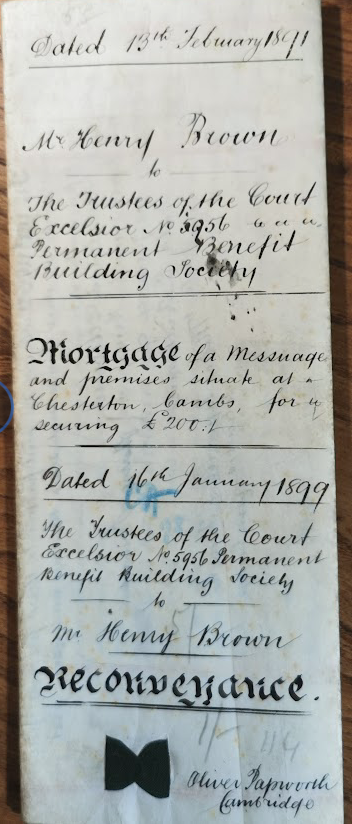 Dated 13th February 1891
Mr Henry Brown
to
The Trustees of the Court
Excelsior No. 5956
Permanent Benefit
Building Society
Mortgage of a Messuage
and premises situate at
Chesterton, Cambs, for
securing £200.
Dated 16th January 1899
The Trustees of the Court
Excelsior No. 5956 Permanent
Benefit Building Society
to
Mr Henry Brown
Reconveyance.
Oliver Papworth
Cambridge